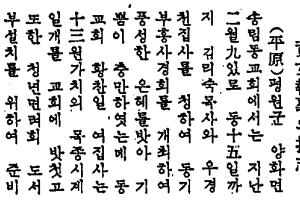 (平原)평원군 양화면
송림동교회에서는 지난
二월九일로 동十五일까
지 김리숙목사와 우경
천집사를 청하여 동기
부흥사경회를 개최하여
풍성한 은혜를밧아 기
쁨이 충만하엿는데 동
교회 황찬일 여집사는
十三원가치의 목종시계
일개를 교회에 밧첫고
또한 청년면려회 도서
부설치를 위하여 준비